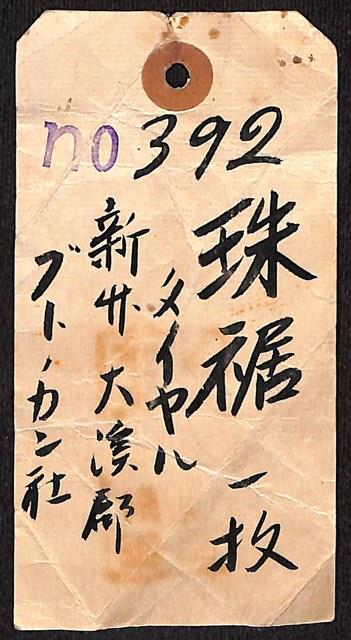 no 392
珠裾 一枚
タイヤル
新竹 大溪郡
ブトノカン社